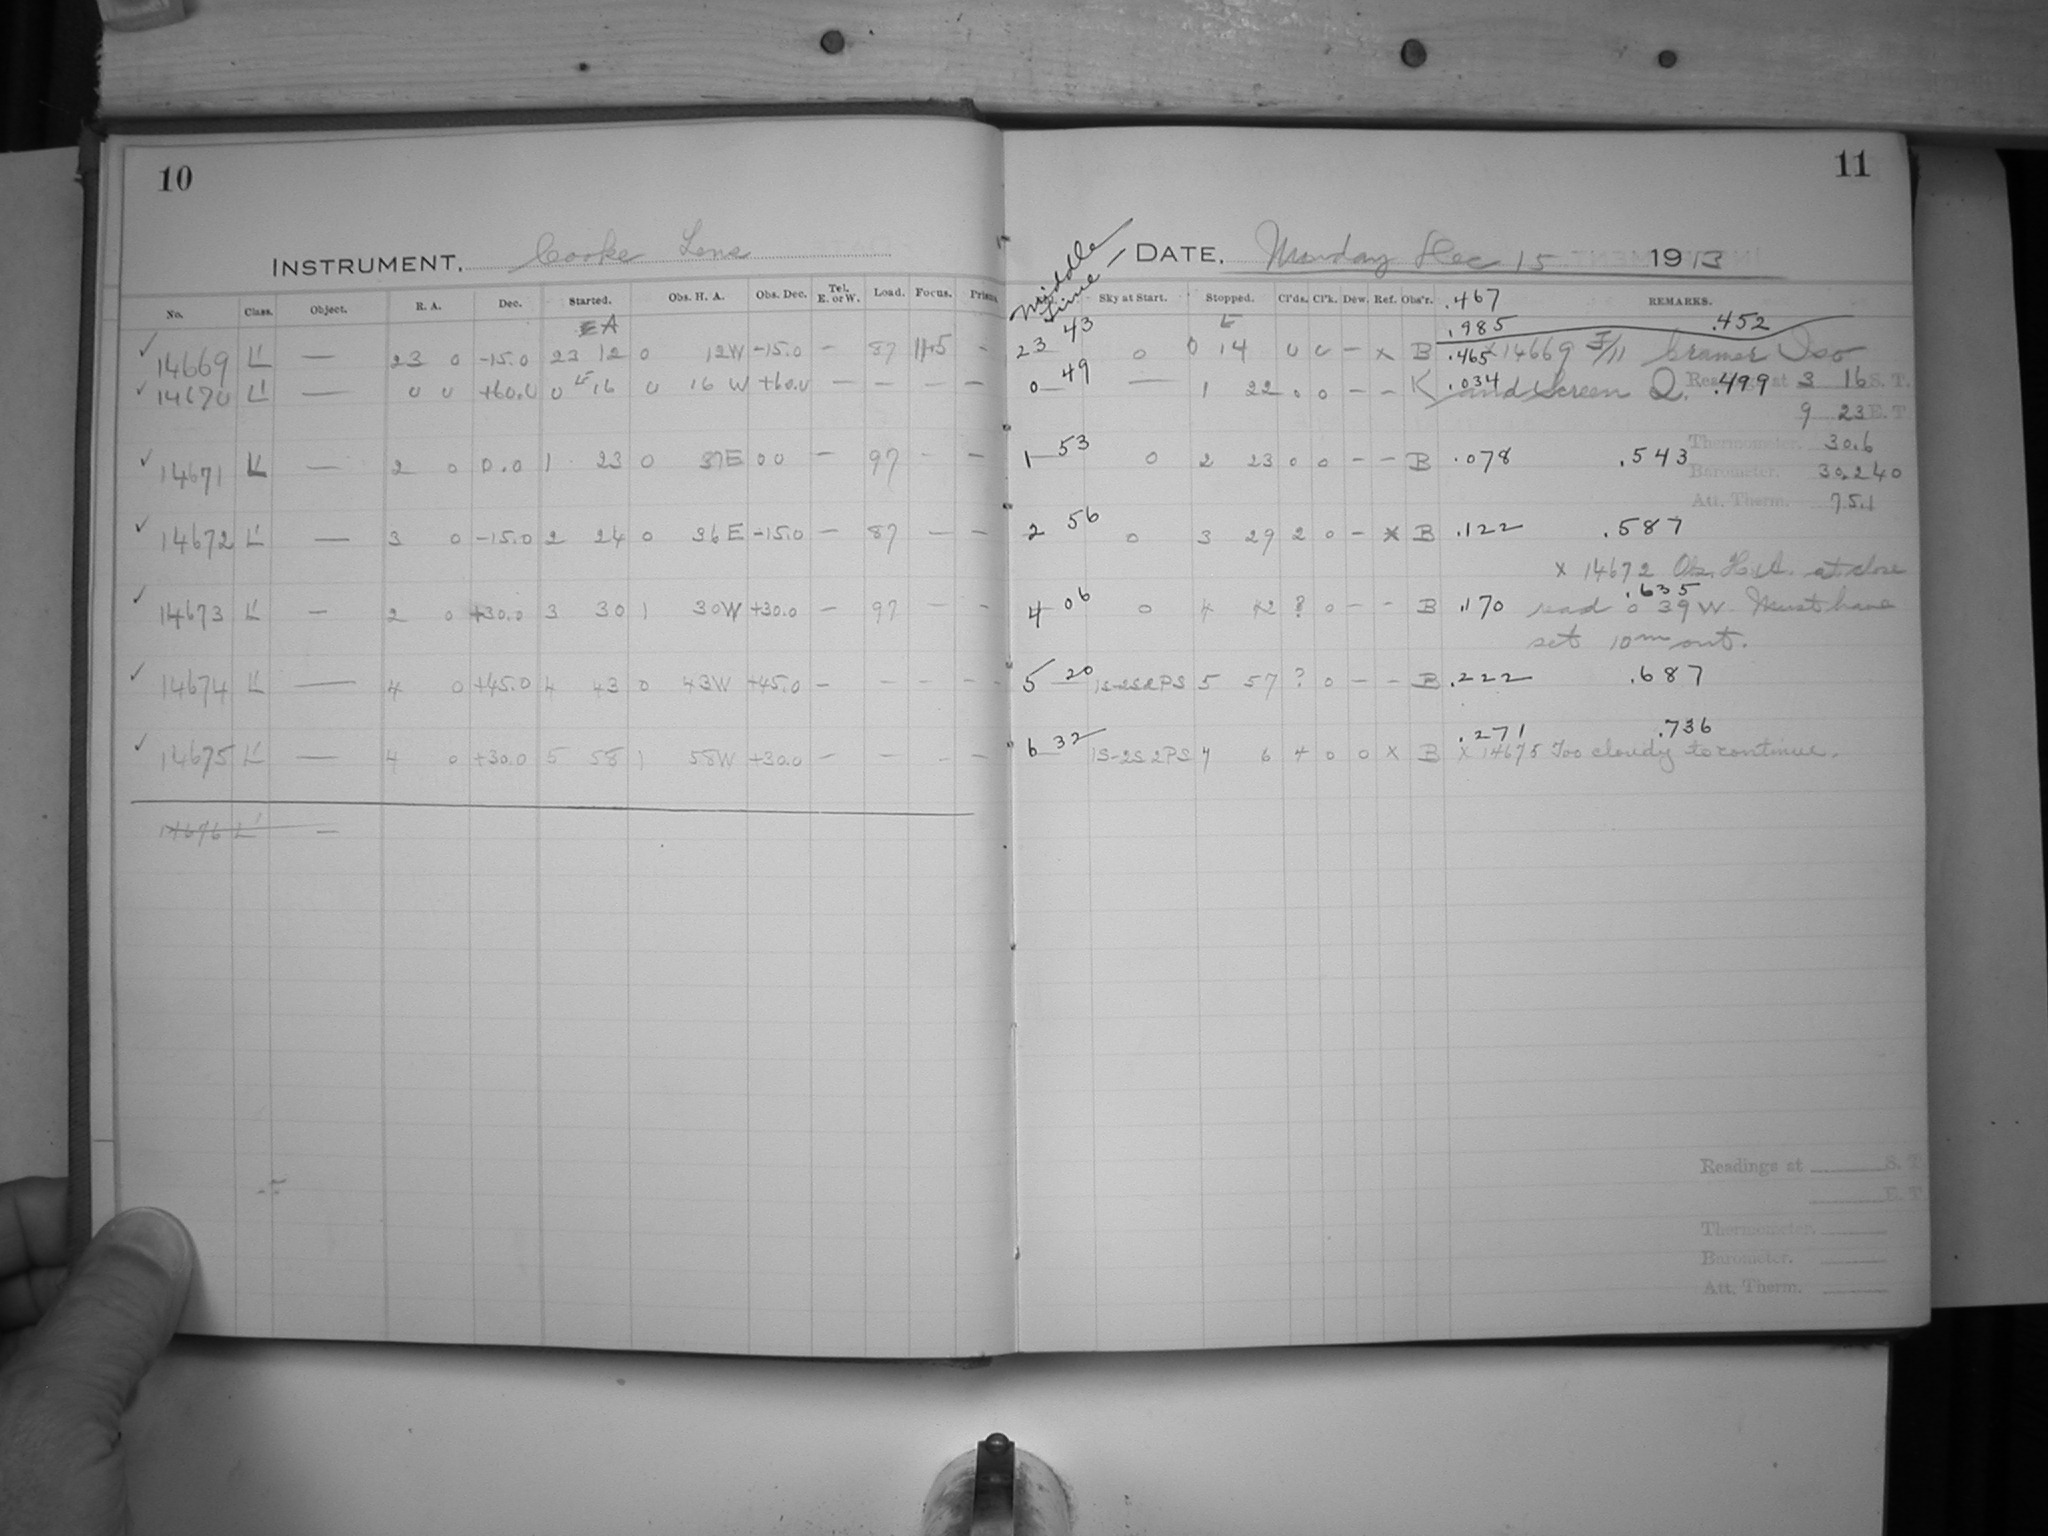 10
INSTRUMENT. Cooke Lens
No. Class. Object. R. A. Dec. Started. Obs. H. A. Obs. Dec. Tel. E. or W. Load. Focus. Prism.
EA
✓ 14669 L' — 23 0 -15.0 23 12 0 12W -15.0 — 87 11.5 -
✓ 14670 L' — 0 0 +60.0 0 16 0 16 W +60.0 — — — —
✓ 14671 L' — 2 0 0.0 1 23 0 37E 00 — 97 - —
✓ 14672 L' — 3 0 -15.0 2 24 0 36 E -15.0 — 87 — —
✓ 14673 L' — 2 0 +30.0 3 30 1 30W +30.0 — 97 - -
✓ 14674 L' — 4 0 +45.0 4 43 0 43W +45.0 — - - -
✓ 14675 L' — 4 0 +30.0 5 58 1 58W +30.0 — - - -
14676 L' —
11
Middle Time
DATE. Monday Dec 15 1913
Sky at Start. Stopped. Cl'ds. Cl'k. Dew. Ref. Obs'r. .467 REMARKS.
.985 .452
23 43 0 0 14 0 0 — x B .465 x 14669 Cramer Iso
0 49 — 1 22 0 0 — - K .034 and Screen Q. .499 Readings at 3 16 S. T.
9 23 E. T.
1 53 0 2 23 0 0 — - B .078 .543 Thermometer. 30.6
Barometer. 30.240
Att. Therm. 75.1
2 56 0 3 29 2 0 — x B .122 .587
x 14672 Obs. H.A. at close
.635
4 06 0 4 42 ? 0 — - B .170 read 0 39 W. Must have
set 10m out.
5 20 1S-2S2PS 5 57 ? 0 — - B .222 .687
.271 .736
6 32 1S-2S2PS 7 6 4 0 0 x B x 14675 Too cloudy to continue.
Readings at S. T.
E. T.
Thermometer.
Barometer.
Att. Therm.